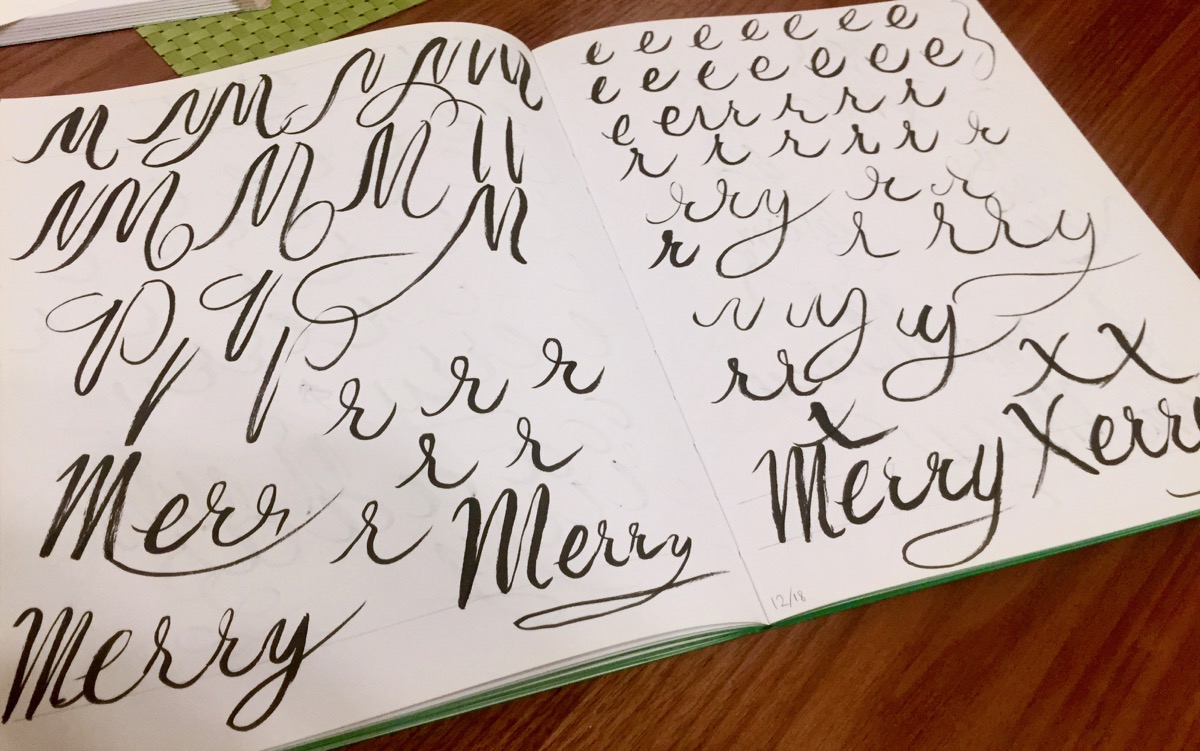 M M M M M M
M M M M
M
P P P
r r r
r r
Merr r Merry
Merry
e e e e e e
e e e e e e e
e e r r r r r
r r r r r r
r r y r r
r r r r r y
y y
r r x x
x
Merry Xerry
12/18